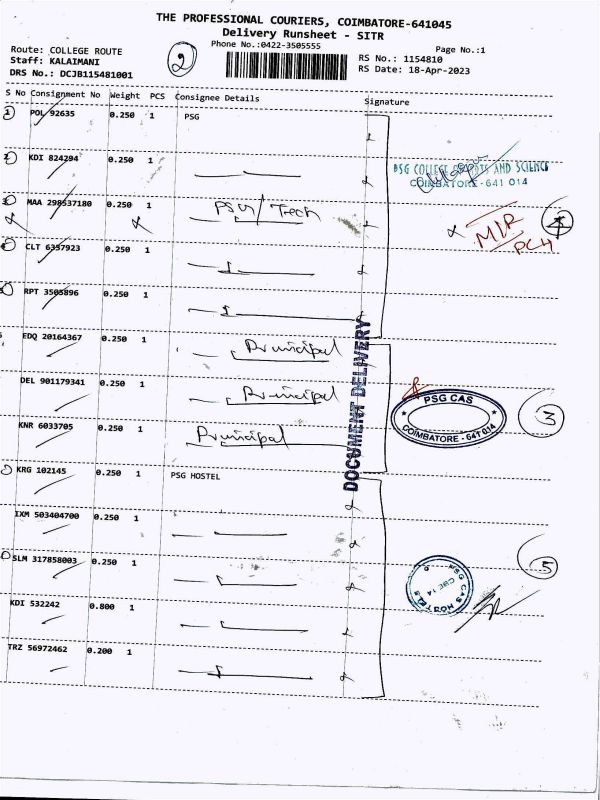 THE PROFESSIONAL COURIERS, COIMBATORE-641045
Delivery Runsheet - SITR
Phone No.:0422-3505555
Page No.:1
Route: COLLEGE ROUTE
Staff: KALAIMANI
DRS No.: DCJB115481001
2
RS No.: 1154810
RS Date: 18-Apr-2023
S No Consignment No Weight PCS Consignee Details Signature
1 POL 92635 0.250 1 PSG
2 KDI 824294 0.250 1
PSG COLLEGE OF ARTS AND SCIENCE
COIMBATORE-641 014
3 MAA 298537180 0.250 1 PSG/Tech
M/R
4 CLT 6357923 0.250 1
RPT 3505896 0.250 1
EDQ 20164367 0.250 1 Principal
DEL 901179341 0.250 1 Principal
KNR 6033705 0.250 1 Principal
DOCUMENT DELIVERY
PSG CAS
COIMBATORE - 641 014
3
KRG 102145 0.250 1 PSG HOSTEL
IXM 503404700 0.250 1
SLM 317858003 0.250 1
PSG CAS HOSTELS
CBE 14
5
KDI 532242 0.800 1
TRZ 56972462 0.200 1